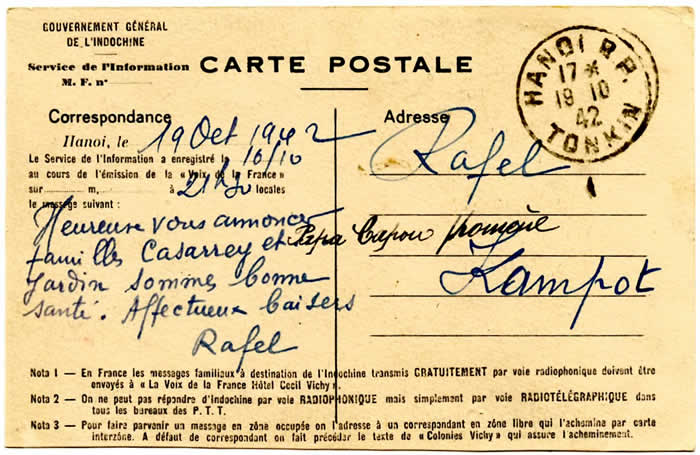 GOUVERNEMENT GÉNÉRAL
DE L'INDOCHINE
Service de l'Information
M. F. nº
CARTE POSTALE
HANOI R.P.
17 *
19 10
42
TONKIN
Correspondance
Hanoi, le 19 Oct 1942
Le Service de l'Information a enregistré le 16/10
au cours de l'émission de la « Voix de la France »
sur m, à 21h30 locales
le message suivant :
Heureuse vous annoncer
familles Casarrey et
Jardin sommes bonne
santé. Affectueux baisers
Rafel
Adresse
Rafel
Papa Capou
Kampot
Nota 1 — En France les messages familiaux à destination de l'Indochine transmis GRATUITEMENT par voie radiophonique doivent être
envoyés à « La Voix de la France Hôtel Cecil Vichy ».
Nota 2 — On ne peut pas répondre d'Indochine par voie RADIOPHONIQUE mais simplement par voie RADIOTÉLÉGRAPHIQUE dans
tous les bureaux des P. T. T.
Nota 3 — Pour faire parvenir un message en zône occupée on l'adresse à un correspondant en zône libre qui l'achemine par carte
interzône. A défaut de correspondant on fait précéder le texte de « Colonies Vichy » qui assure l'acheminement.